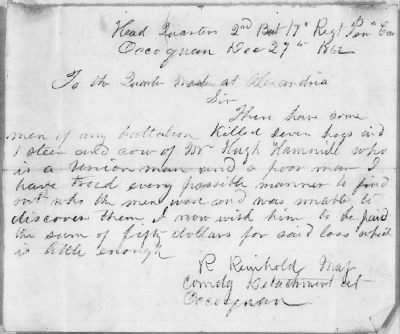 Head Quarters 2nd Bat 17th Regt Pena Cav
Occoquan Dec 29th 1862
To the Quarter Master at Alexandria
Sir
There have some
men of my battalion Killed seven hogs and
1 steer and cow of Mr Hugh Hammill who
is a Union man and a poor man I
have tried every possible manner to find
out who the men were and was unable to
discover them, I now wish him to be paid
the sum of fifty dollars for said loss which
is little enough
R Reinhold Maj
Comdg Detachment at
Occoquan